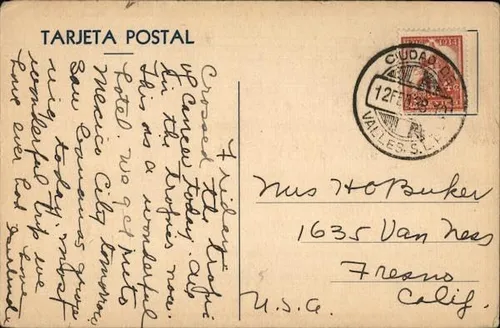 TARJETA POSTAL
CIUDAD DE
12 FEB 38
VALLES. S.L.
Friday
Crossed the tropic
of Cancer today. are
in the tropics now.
This is a wonderful
hotel. We get into
Mexico City tomorrow
Saw bananas grow
ing today. most
wonderful trip we
have ever had
Love
Mrs H O Buker
1635 Van Ness
Fresno
Calif.
U.S.A.